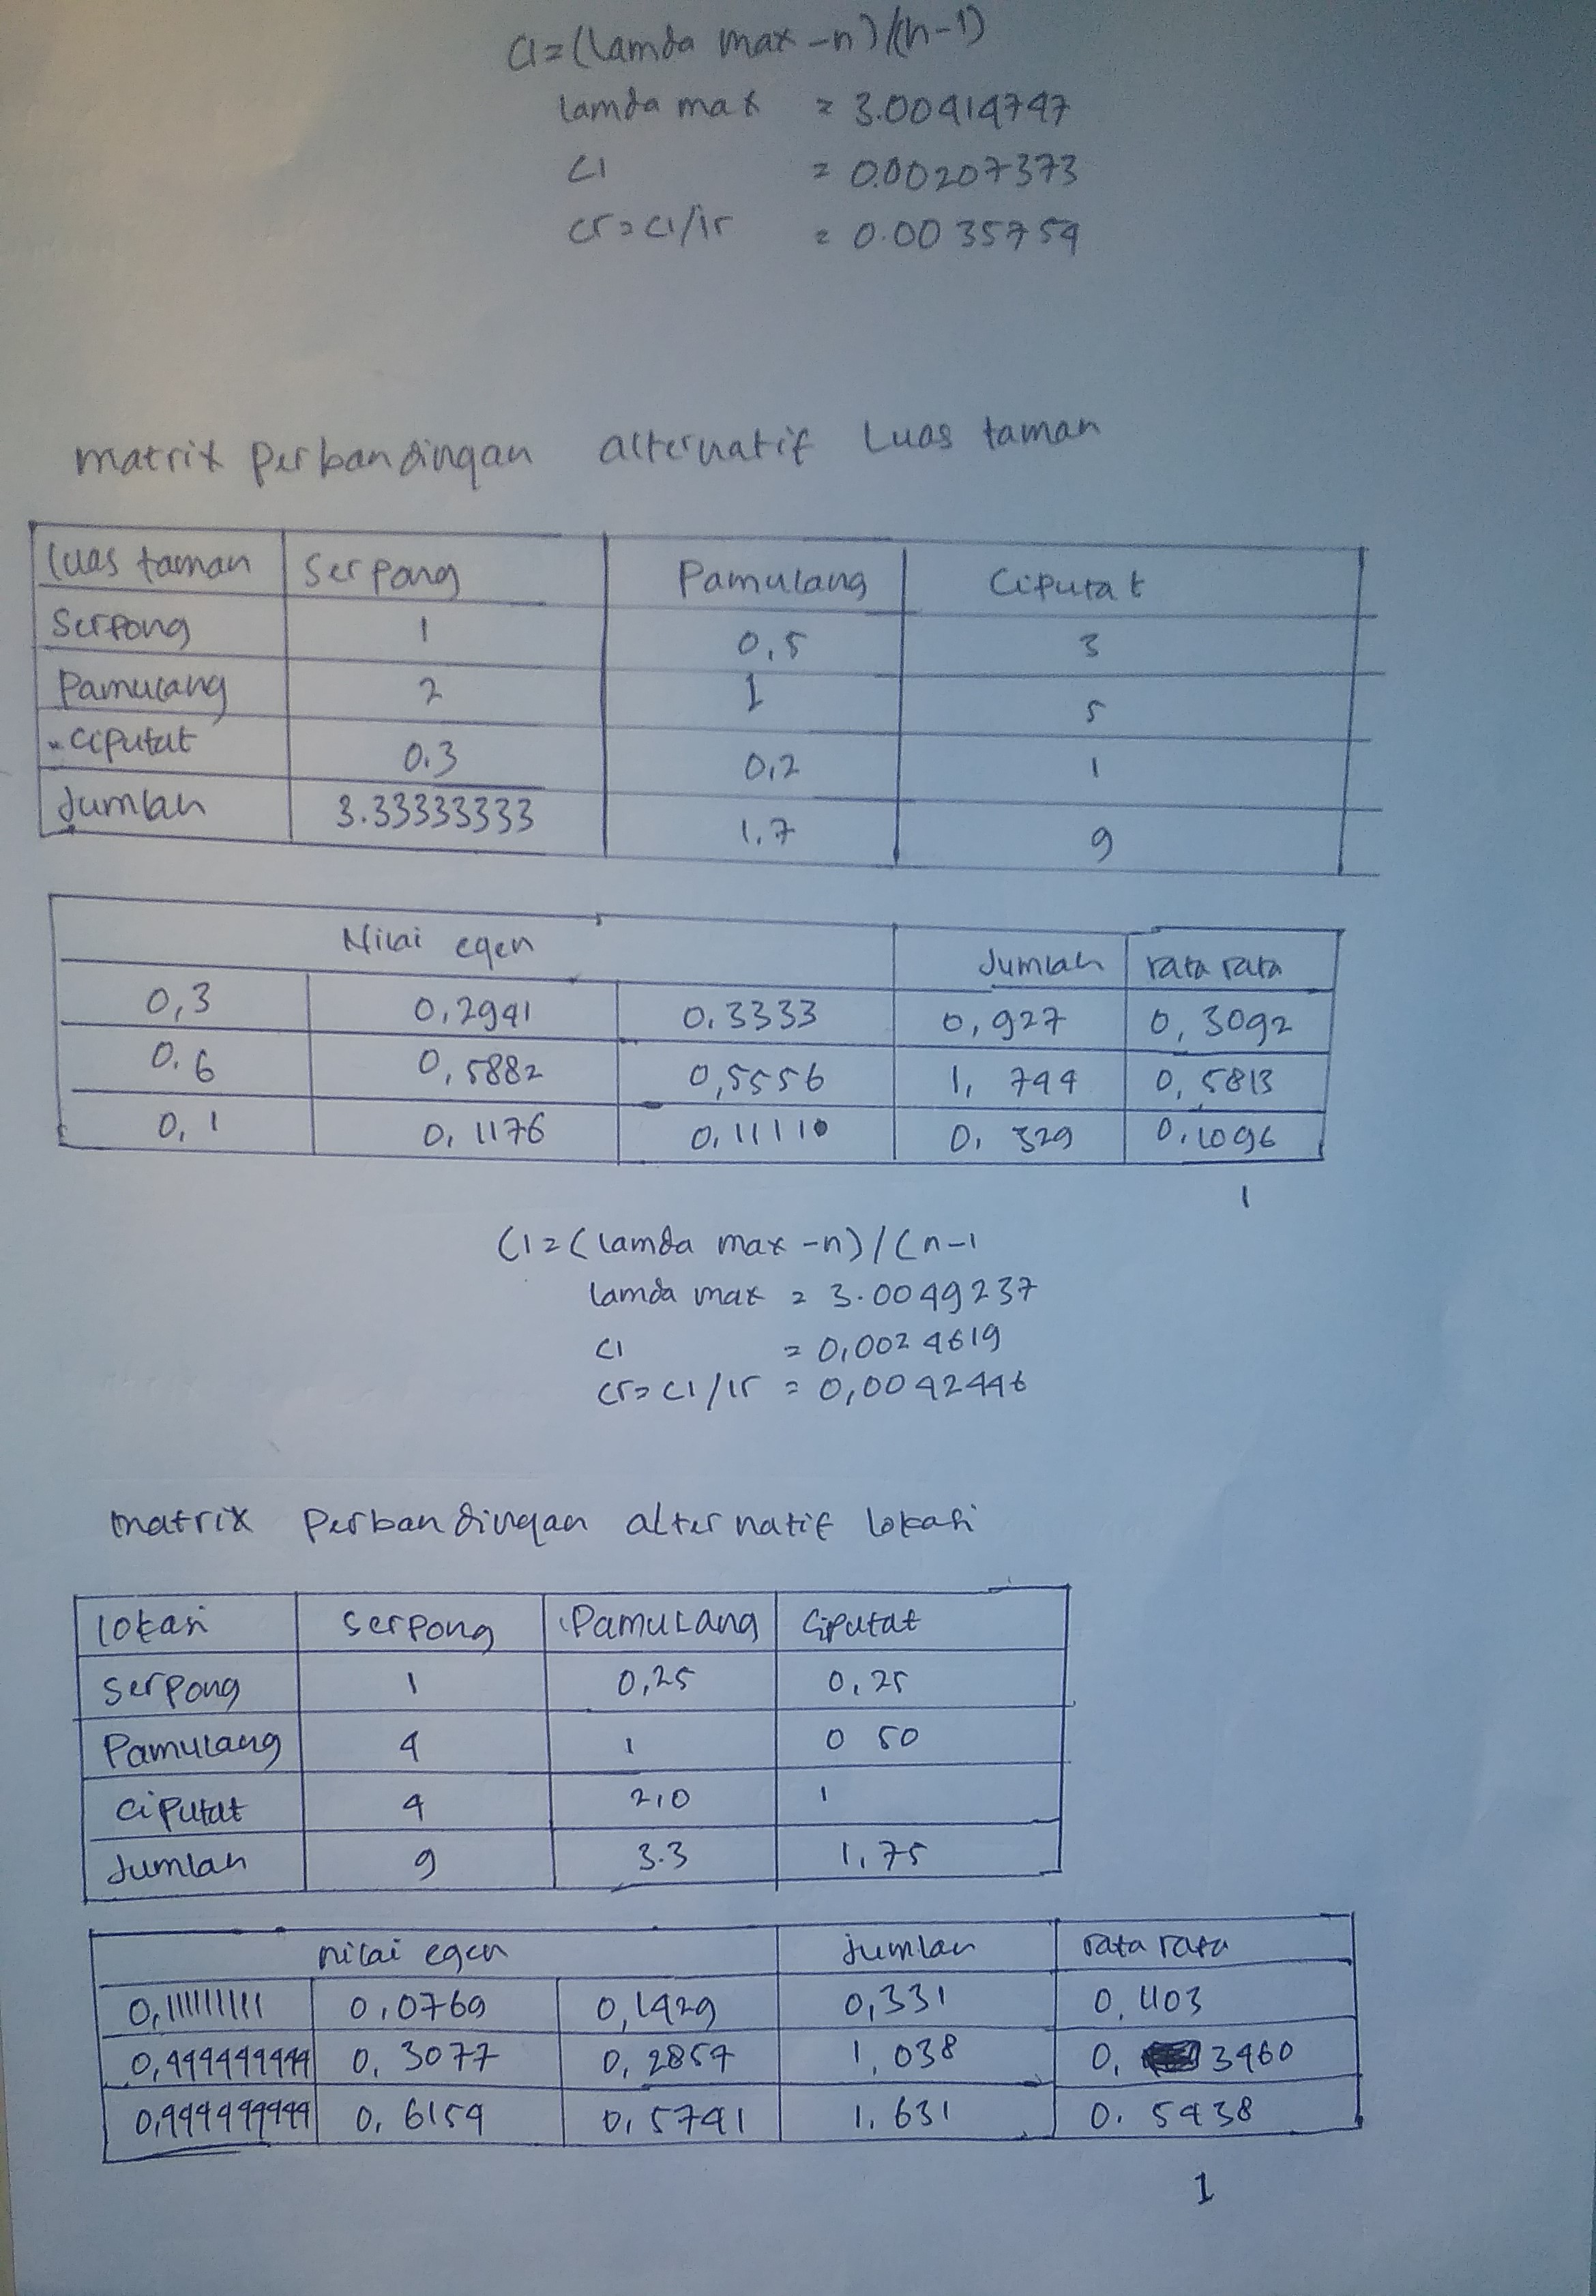 CI=(lamda max -n)/(n-1)
lamda max = 3.00414747
CI = 0.00207373
cr=CI/ir = 0.0035754
matrix perbandingan alternatif Luas taman
luas taman Serpong Pamulang Ciputat
Serpong 1 0,5 3
Pamulang 2 1 5
Ciputat 0.3 0,2 1
Jumlah 3.33333333 1,7 9
Nilai egen Jumlah rata rata
0,3 0,2941 0.3333 0,927 0,3092
0.6 0,5882 0,5556 1,744 0,5813
0,1 0,1176 0,1111 0,329 0,1096
1
CI=(lamda max -n)/(n-1
lamda max = 3.0049237
CI = 0,0024619
cr=CI/ir = 0,0042446
matrix Perbandingan alternatif lokasi
lokasi Serpong Pamulang Ciputat
Serpong 1 0,25 0,25
Pamulang 4 1 0 50
Ciputat 4 2,0 1
Jumlah 9 3.3 1,75
nilai egen jumlah rata rata
0,111111111 0,0769 0,1429 0,331 0,1103
0,444444444 0,3077 0,2857 1,038 0,3460
0,444444444 0,6154 0,5741 1.631 0.5438
1